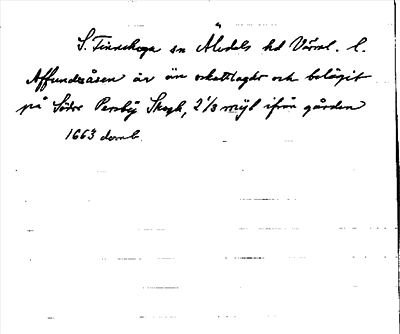 S. Finnskoga sn Älvdals hd Värml. l.
Affundzåsen är än oskattlagdr och belägit
på Södre Persby Skogh, 2 1/3 mijl ifrån gården
1663 domb.